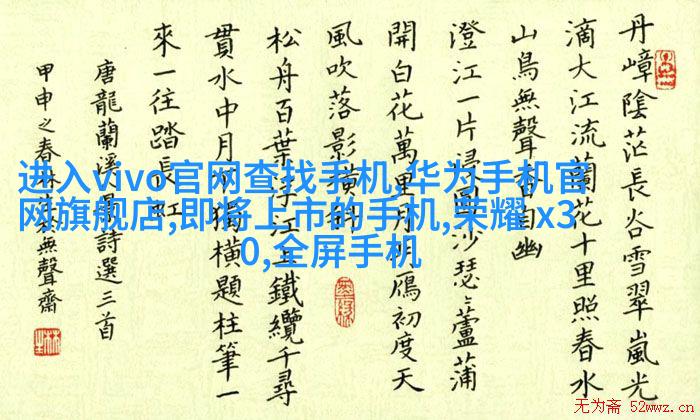 丹嶂陰茫長谷雪翠嵐光
滴大江流蘭花十里照春水
山鳥無聲香自幽
澄江一片浸沙瑟〻蘆蒲
開白花萬里月明鴈初度天
風吹落影橫斜
松舟百葉浮江上鐵纜千尋
貫水中月獨橫題柱筆一
來一往踏長虹
唐龍蘭溪詩選三首
甲申之春林無聲齋
进入vivo官网查找手机,华为手机官
网旗舰店,即将上市的手机,荣耀 x3
0,全屏手机
无为斋 52wwz.cn